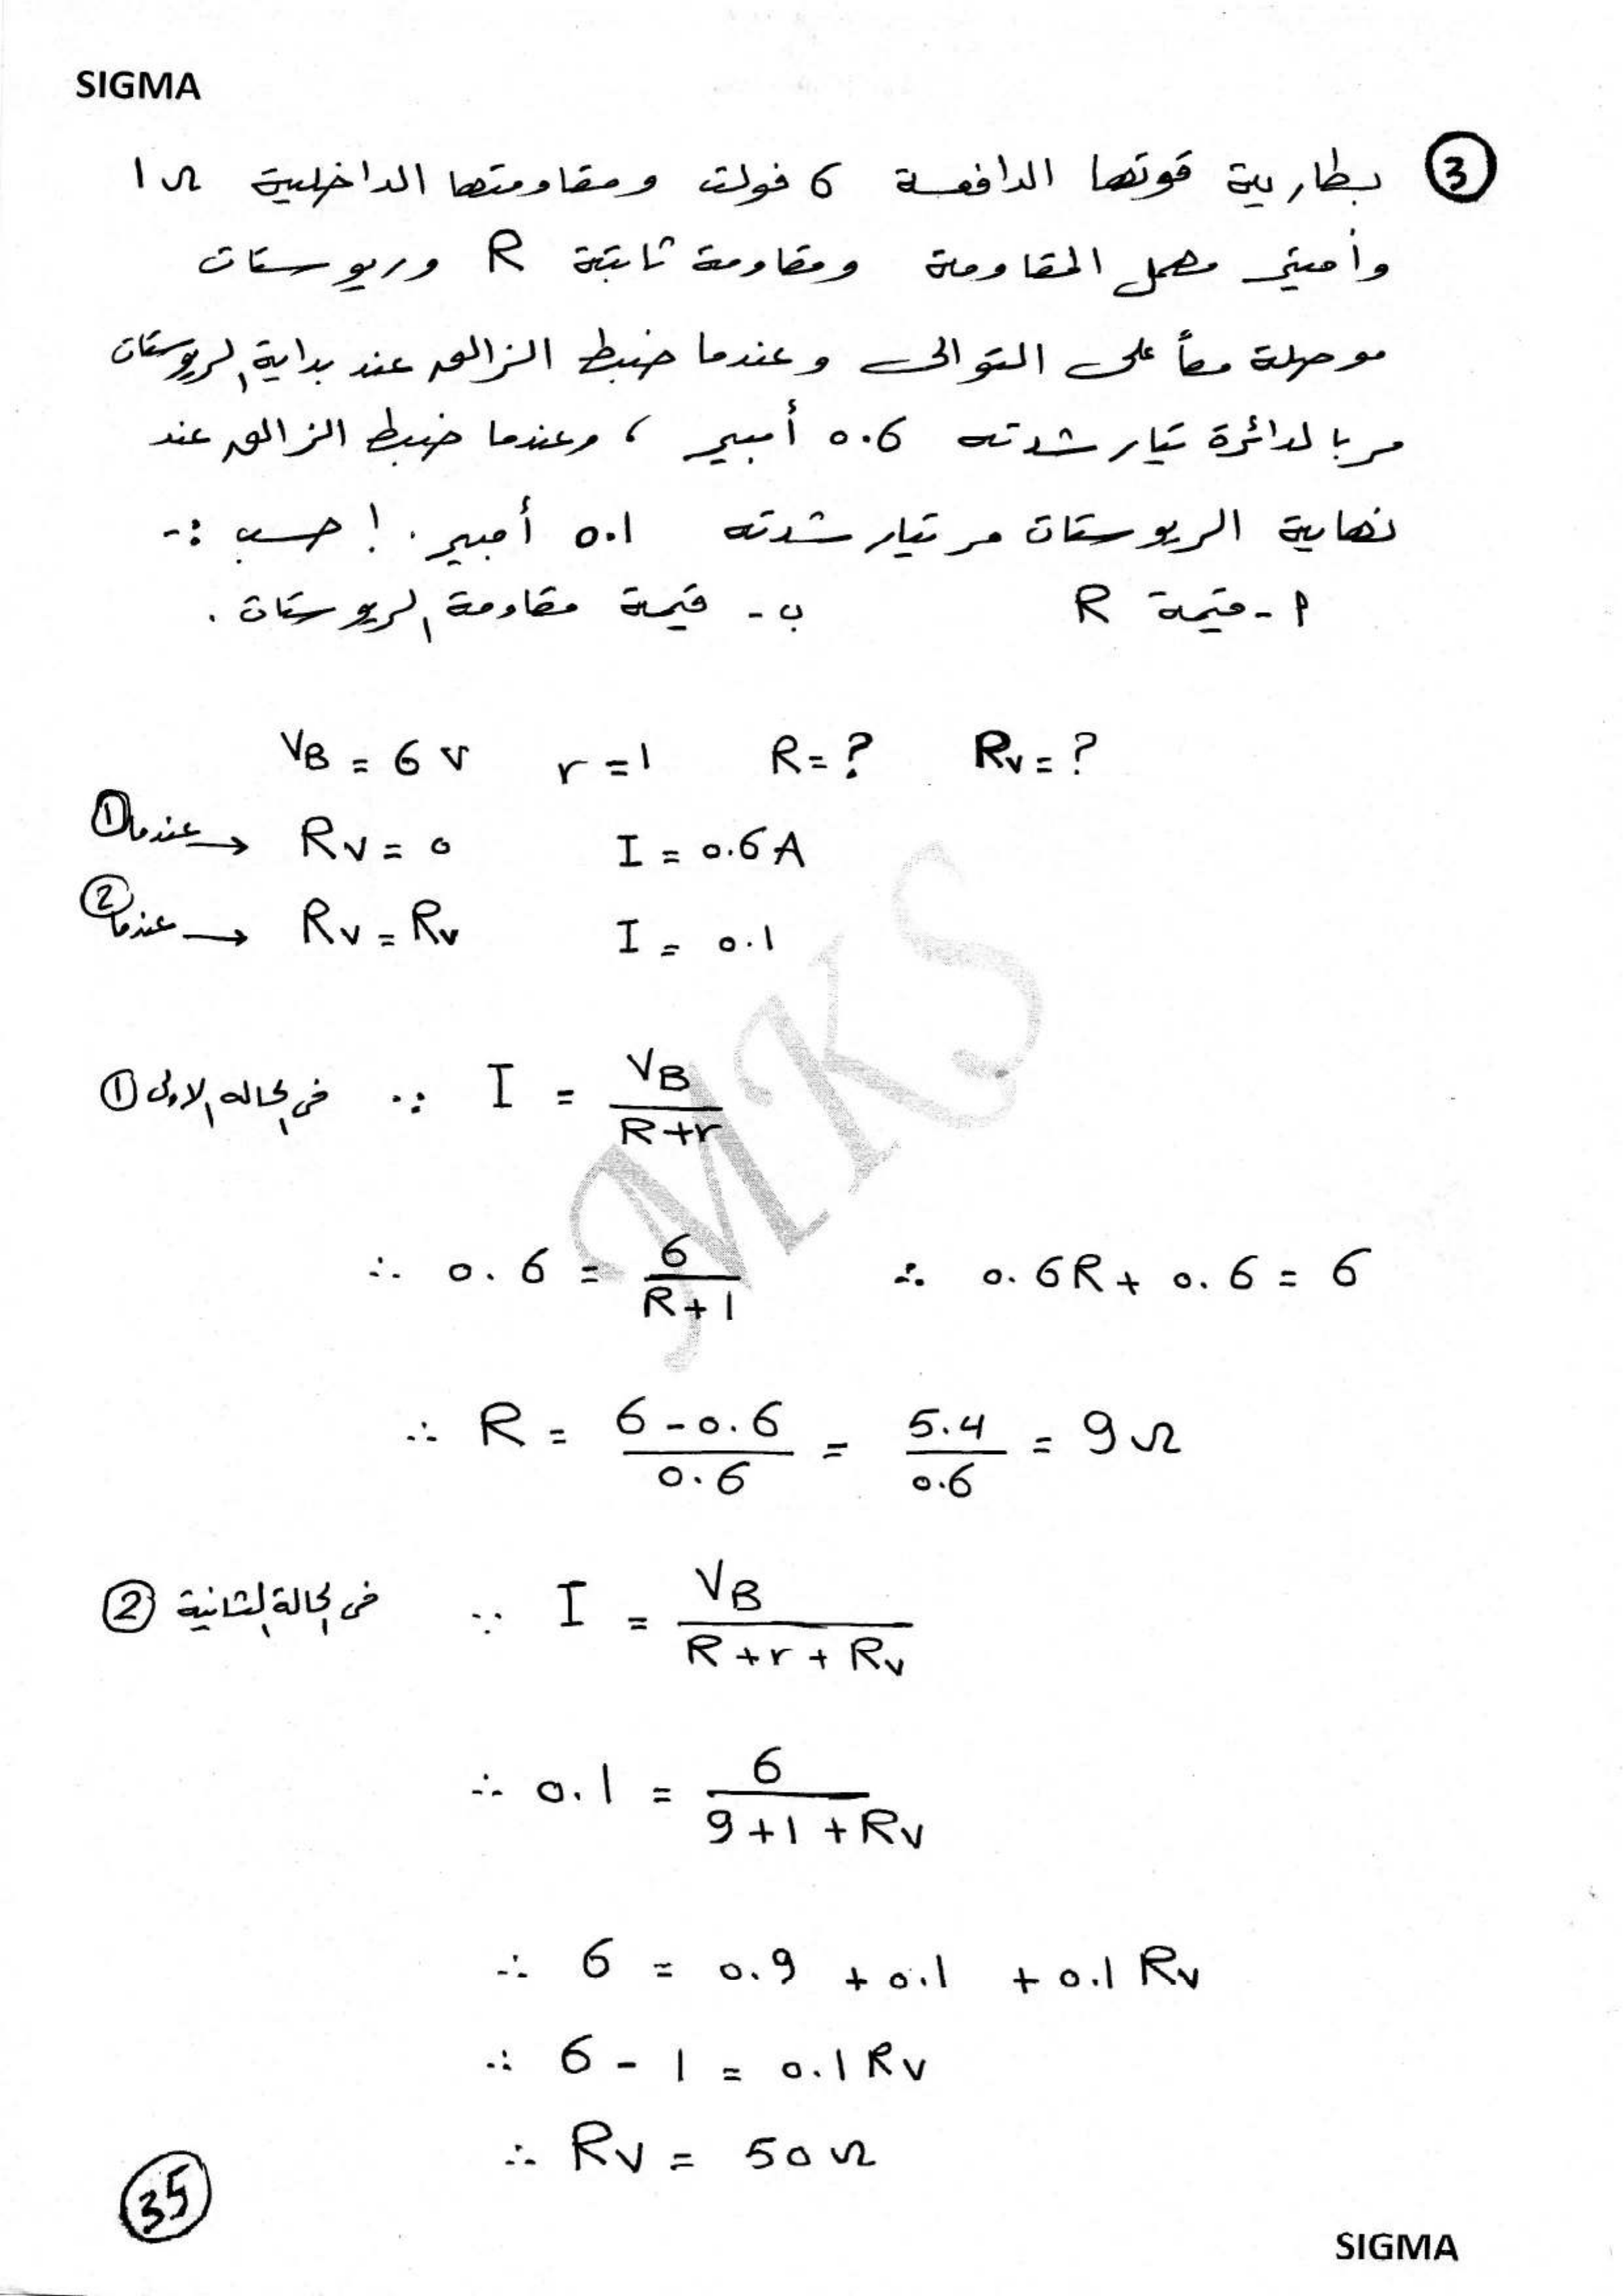 SIGMA
③ بطارية قوتها الدافعة 6 فولت ومقاومتها الداخلية 1Ω
وأميتر مهمل المقاومة ومقاومة ثابتة R وريوستات
موصلة معاً على التوالى وعندما ضبط الزالق عند بداية الريوستات
مر بالدائرة تيار شدته 0.6 أمبير ، وعندما ضبط الزالق عند
نهاية الريوستات مر تيار شدته 0.1 أمبير . احسب :-
أ - قيمة R ب - قيمة مقاومة الريوستات .
VB = 6 V r = 1 R = ? Rv = ?
① عندما → Rv = 0 I = 0.6 A
② عندما → Rv = Rv I = 0.1
① فى الحاله الاولى ∵ I = VB / R+r
∴ 0.6 = 6 / R+1 ∴ 0.6R + 0.6 = 6
∴ R = 6-0.6 / 0.6 = 5.4 / 0.6 = 9Ω
② فى الحالة الثانية ∵ I = VB / R+r+Rv
∴ 0.1 = 6 / 9+1+Rv
∴ 6 = 0.9 + 0.1 + 0.1 Rv
∴ 6 - 1 = 0.1 Rv
∴ Rv = 50Ω
35
SIGMA
MKS